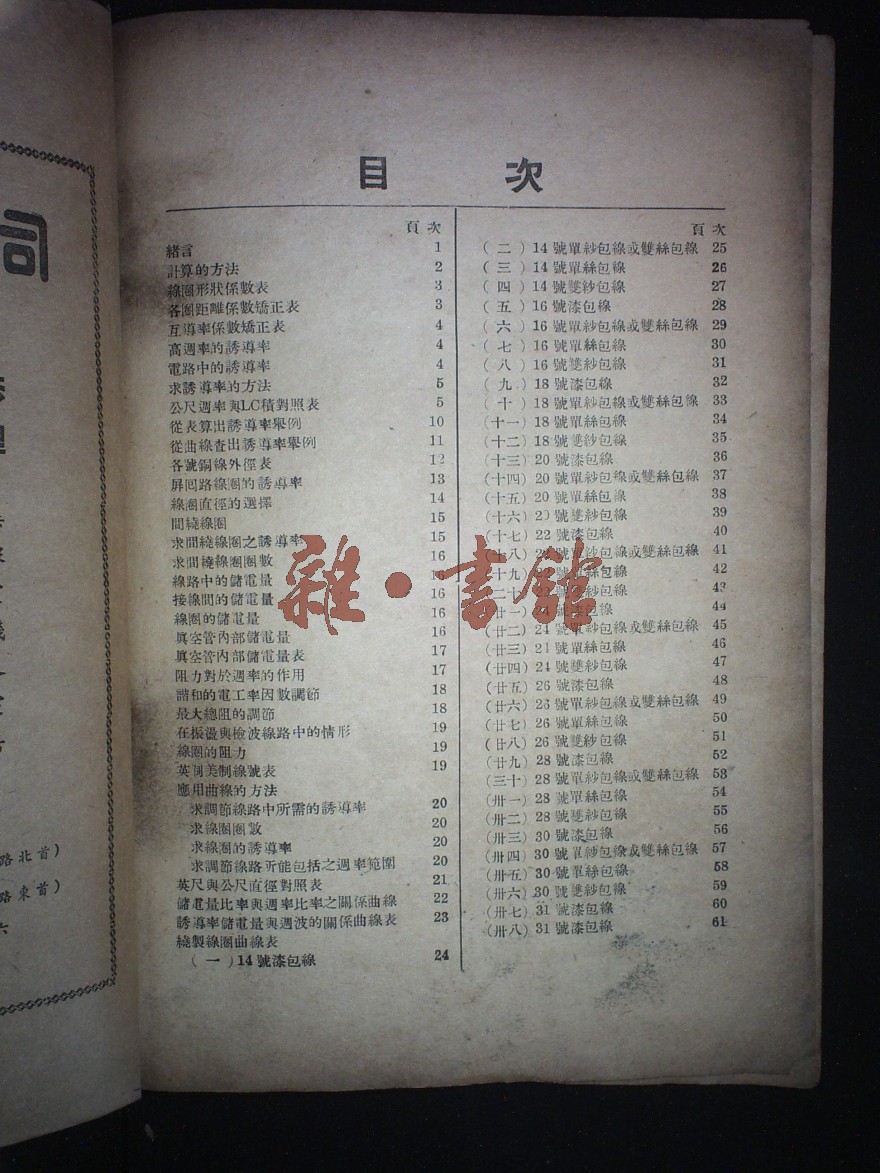 目 次
頁 次
緒言 1
計算的方法 2
線圈形狀係數表 3
各圈距離係數矯正表 3
互導率係數矯正表 4
高週率的誘導率 4
電路中的誘導率 4
求誘導率的方法 5
公尺週率與LC積對照表 5
從表算出誘導率舉例 10
從曲線查出誘導率舉例 11
各號銅線外徑表 12
屏回路線圈的誘導率 13
線圈直徑的選擇 14
間繞線圈 15
求間繞線圈之誘導率 15
求間繞線圈圈數 16
線路中的儲電量 16
接線間的儲電量 16
線圈的儲電量 16
真空管內部儲電量 16
真空管內部儲電量表 17
阻力對於週率的作用 17
諧和的電工率因數調節 18
最大總阻的調節 18
在振盪與檢波線路中的情形 19
線圈的阻力 19
英制美制線號表 19
應用曲線的方法
求調節線路中所需的誘導率 20
求線圈圈數 20
求線圈的誘導率 20
求調節線路所能包括之週率範圍 20
英尺與公尺直徑對照表 21
儲電量比率與週率比率之關係曲線 22
誘導率儲電量與週波的關係曲線表 23
繞製線圈曲線表
(一) 14號漆包線 24
頁 次
(二) 14號單紗包線或雙絲包線 25
(三) 14號單絲包線 26
(四) 14號雙紗包線 27
(五) 16號漆包線 28
(六) 16號單紗包線或雙絲包線 29
(七) 16號單絲包線 30
(八) 16號雙紗包線 31
(九) 18號漆包線 32
(十) 18號單紗包線或雙絲包線 33
(十一) 18號單絲包線 34
(十二) 18號雙紗包線 35
(十三) 20號漆包線 36
(十四) 20號單紗包線或雙絲包線 37
(十五) 20號單絲包線 38
(十六) 2)號雙紗包線 39
(十七) 22號漆包線 40
(十八) 22號單紗包線或雙絲包線 41
(十九) 22號單絲包線 42
(二十) 22號雙紗包線 43
(廿一) 24號漆包線 44
(廿二) 24號單紗包線或雙絲包線 45
(廿三) 24號單絲包線 46
(廿四) 24號雙紗包線 47
(廿五) 26號漆包線 48
(廿六) 26號單紗包線或雙絲包線 49
(廿七) 26號單絲包線 50
(廿八) 26號雙紗包線 51
(廿九) 28號漆包線 52
(三十) 28號單紗包線或雙絲包線 53
(卅一) 28號單絲包線 54
(卅二) 28號雙紗包線 55
(卅三) 30號漆包線 56
(卅四) 30號單紗包線或雙絲包線 57
(卅五) 30號單絲包線 58
(卅六) 30號雙紗包線 59
(卅七) 31號漆包線 60
(卅八) 31號單絲包線 61
雜·書館
司
理
路北首)
路東首)
六